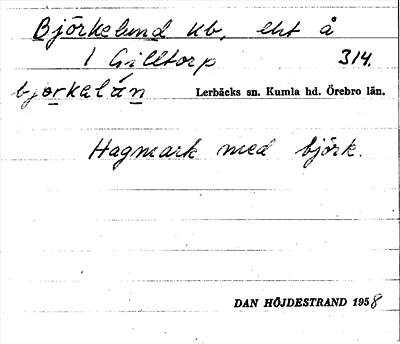 Björkelund ub. eket å
1 Gilltorp 314.
bjo̱rkalán̲ Lerbäcks sn. Kumla hd. Örebro län.
Hagmark med björk.
DAN HÖJDESTRAND 1958